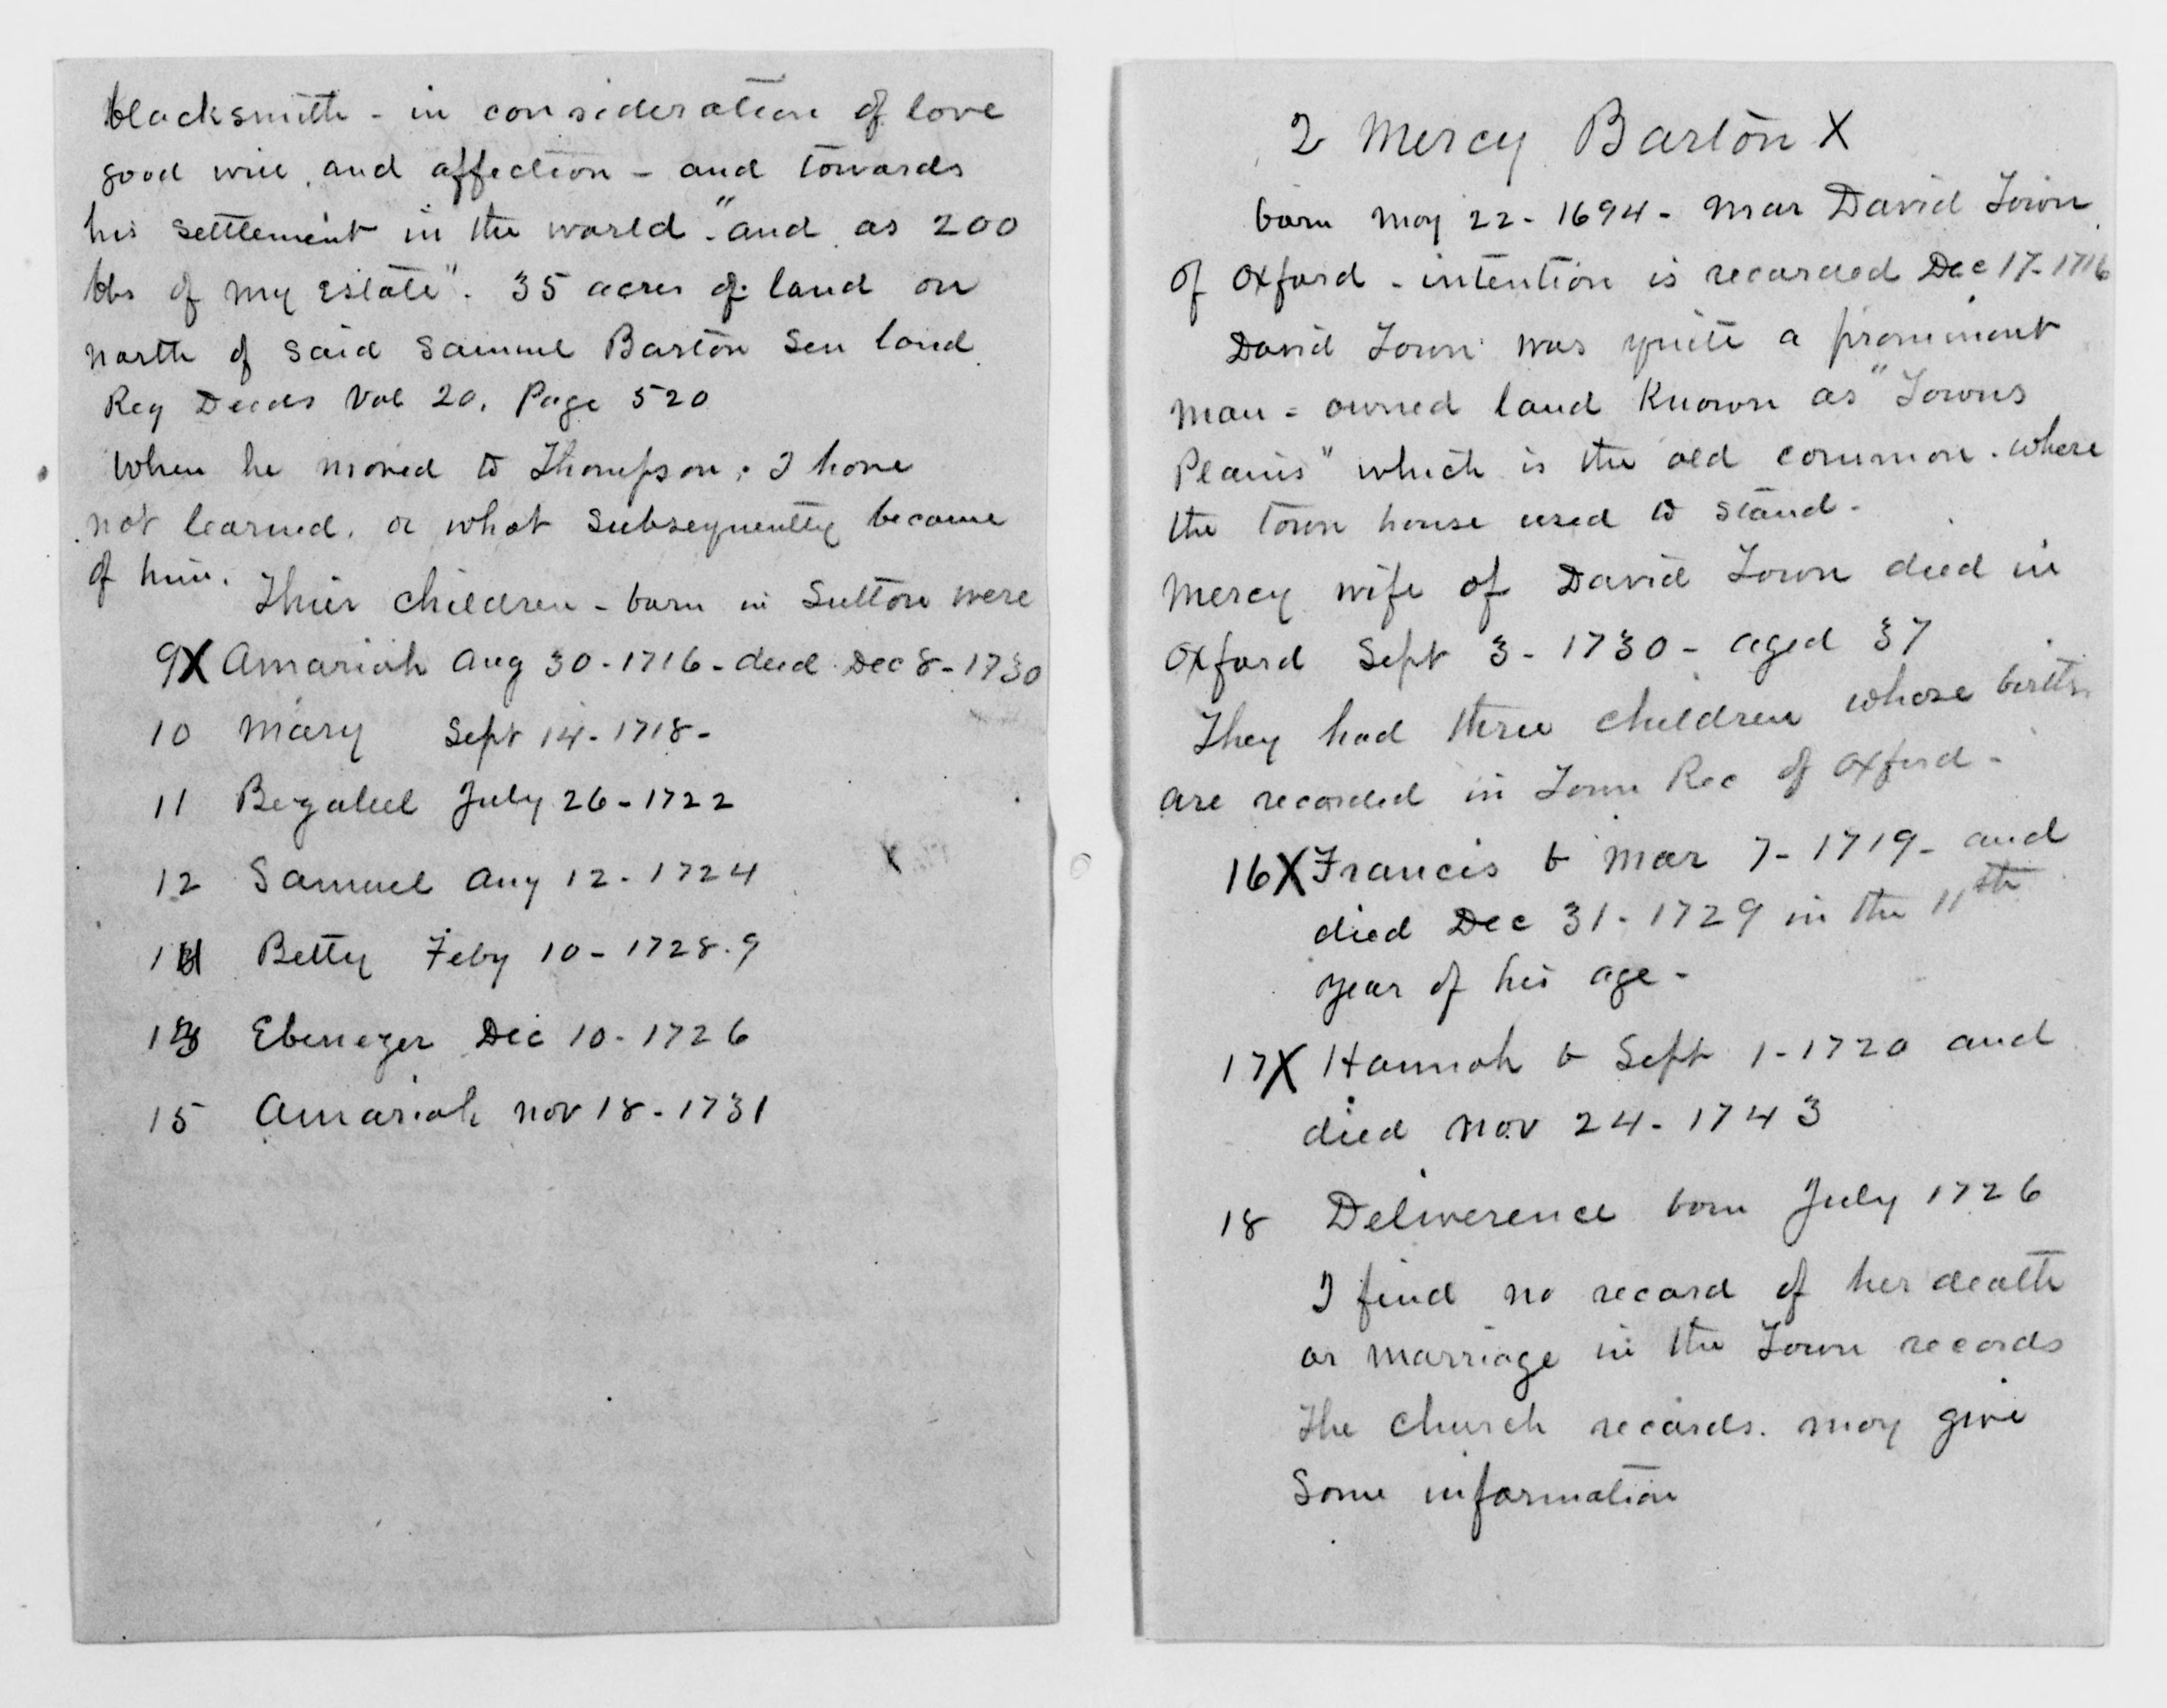 blacksmith - in consideration of love
good will, and affection - and towards
his settlement in the world - "and as 200
lbs of my Estate". 35 acres of land on
north of said Samuel Barton Sen land
Reg Deeds Vol 20, Page 520
When he moved to Thompson, I have
not learned, or what subsequently became
of him.
Thier children - born in Sutton were
9X Amariah Aug 30 - 1716 - died Dec 8 - 1730
10 Mary Sept 14 - 1718 -
11 Bezaleel July 26 - 1722
12 Samuel Aug 12 - 1724
X
14 Betty Feby 10 - 1728.9
13 Ebenezer Dec 10 - 1726
15 Amariah Nov 18 - 1731
2 Mercy Barton X
born May 22 - 1694 - Mar David Town
of Oxford - intention is recorded Dec 17 - 1716
David Town was quite a prominent
man - owned land known as "Towns
Plains" which is the old common - where
the town house used to stand -
Mercy wife of David Town died in
Oxford Sept 3 - 1730 - aged 37
They had three children whose births
are recorded in Town Rec of Oxford -
16X Francis b Mar 7 - 1719 - and
died Dec 31 - 1729 in the 11th
year of his age -
17X Hannah b Sept 1 - 1720 and
died Nov 24 - 1743
18 Deliverence born July 1726
I find no record of her death
or marriage in the Town records
The church records may give
Some information